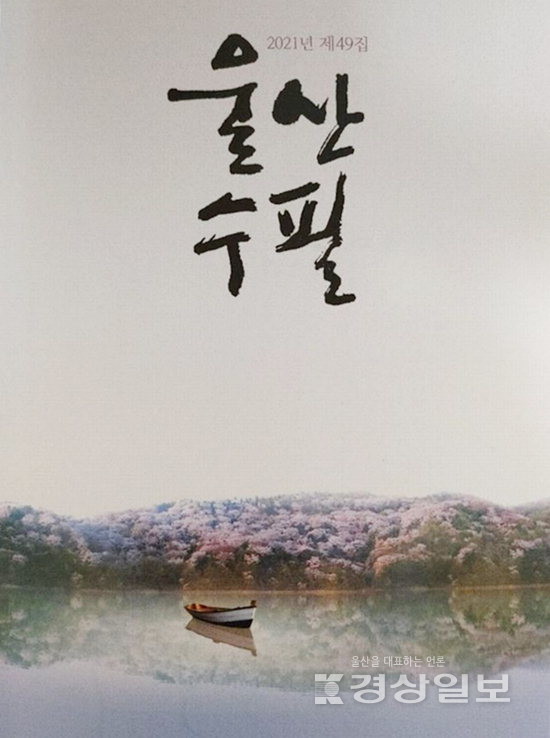 2021년 제49집
울산
수필
울산을 대표하는 언론
경상일보